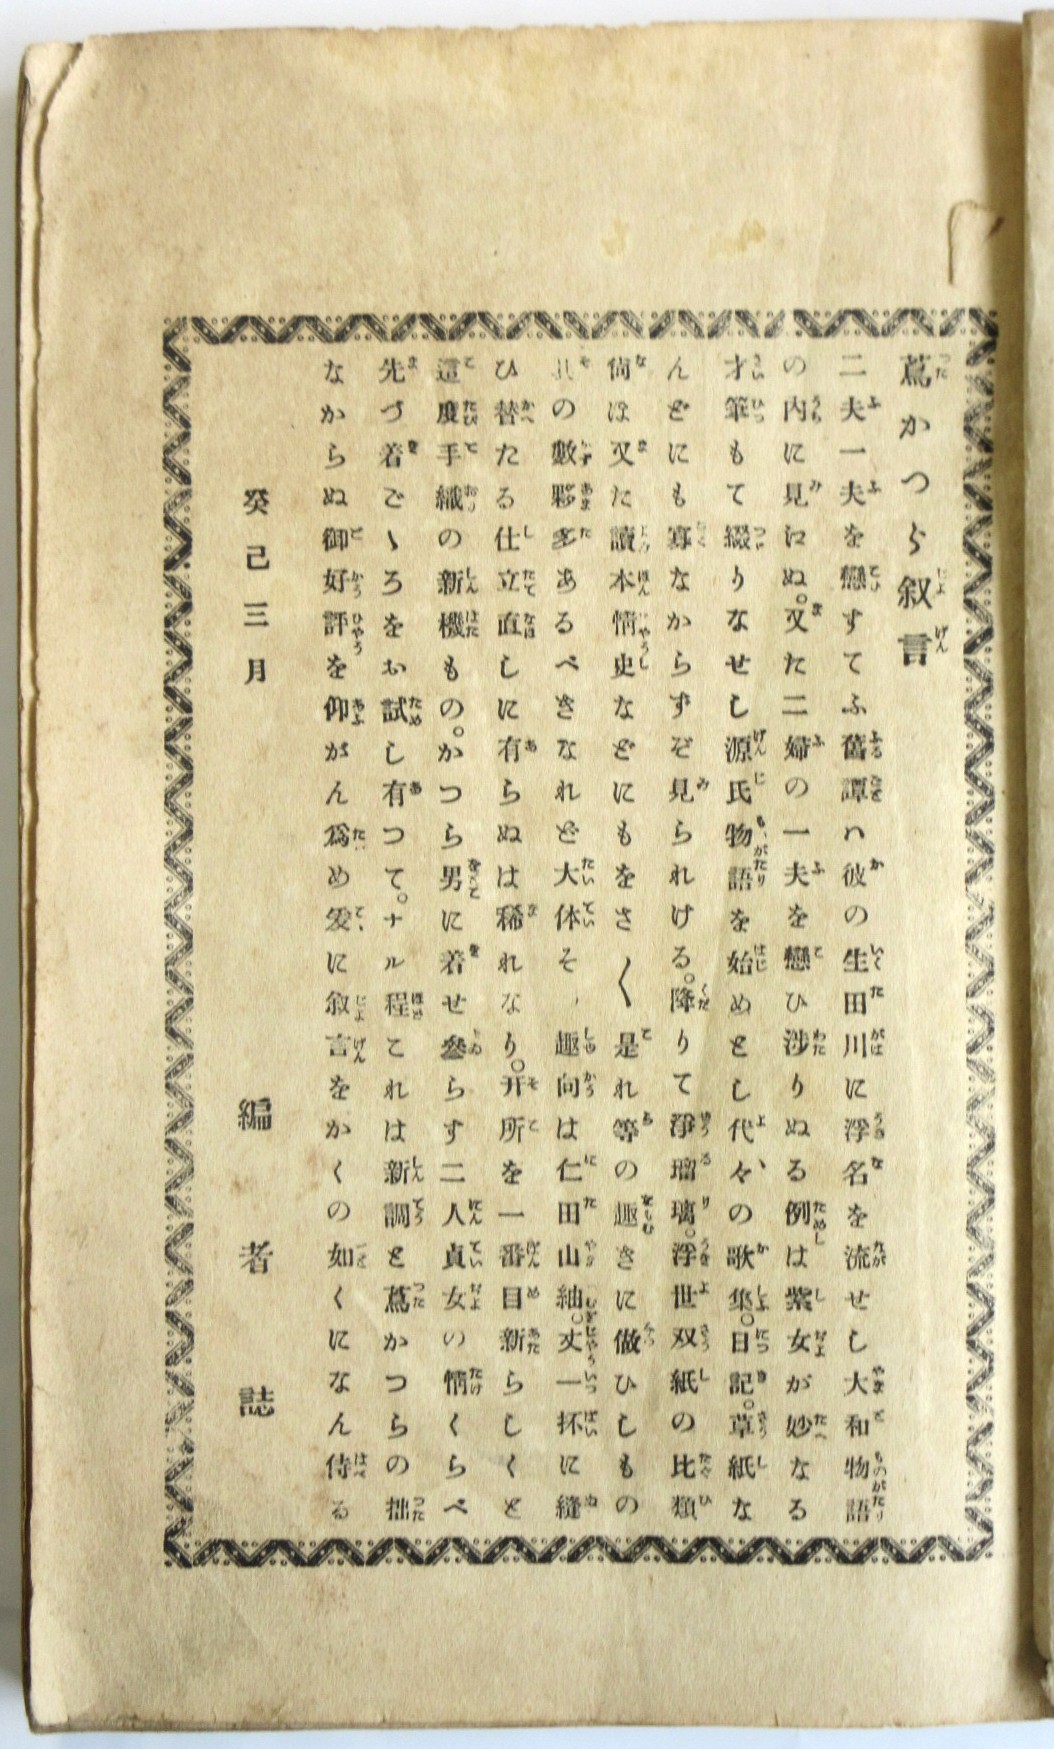 蔦かつら叙言
二夫一夫を戀すてふ舊譚ハ彼の生田川に浮名を流せし大和物語
の内に見にぬ。又た二婦の一夫を戀ひ渉りぬる例は紫女が妙なる
才筆もて綴りなせし源氏物語を始めとし代々の歌集。日記。草紙な
んどにも寡なからずぞ見られける。降りて淨瑠璃。浮世双紙の比類
尙ほ又た讀本情史などにもをさ〱是れ等の趣きに做ひしもの
其の數夥多あるべきなれど大体そゝ趣向は仁田山紬。丈一抔に縫
ひ替たる仕立直しに有らぬは稀れなり。开所を一番目新らしくと
這度手織の新機もの。かつら男に着せ參らす二人貞女の情くらべ
先づ着ごゝろをお試し有つて。ナル程これは新調と蔦かつらの拙
なからぬ御好評を仰がん爲め爰に叙言をかくの如くになん侍る
癸巳三月
編者誌